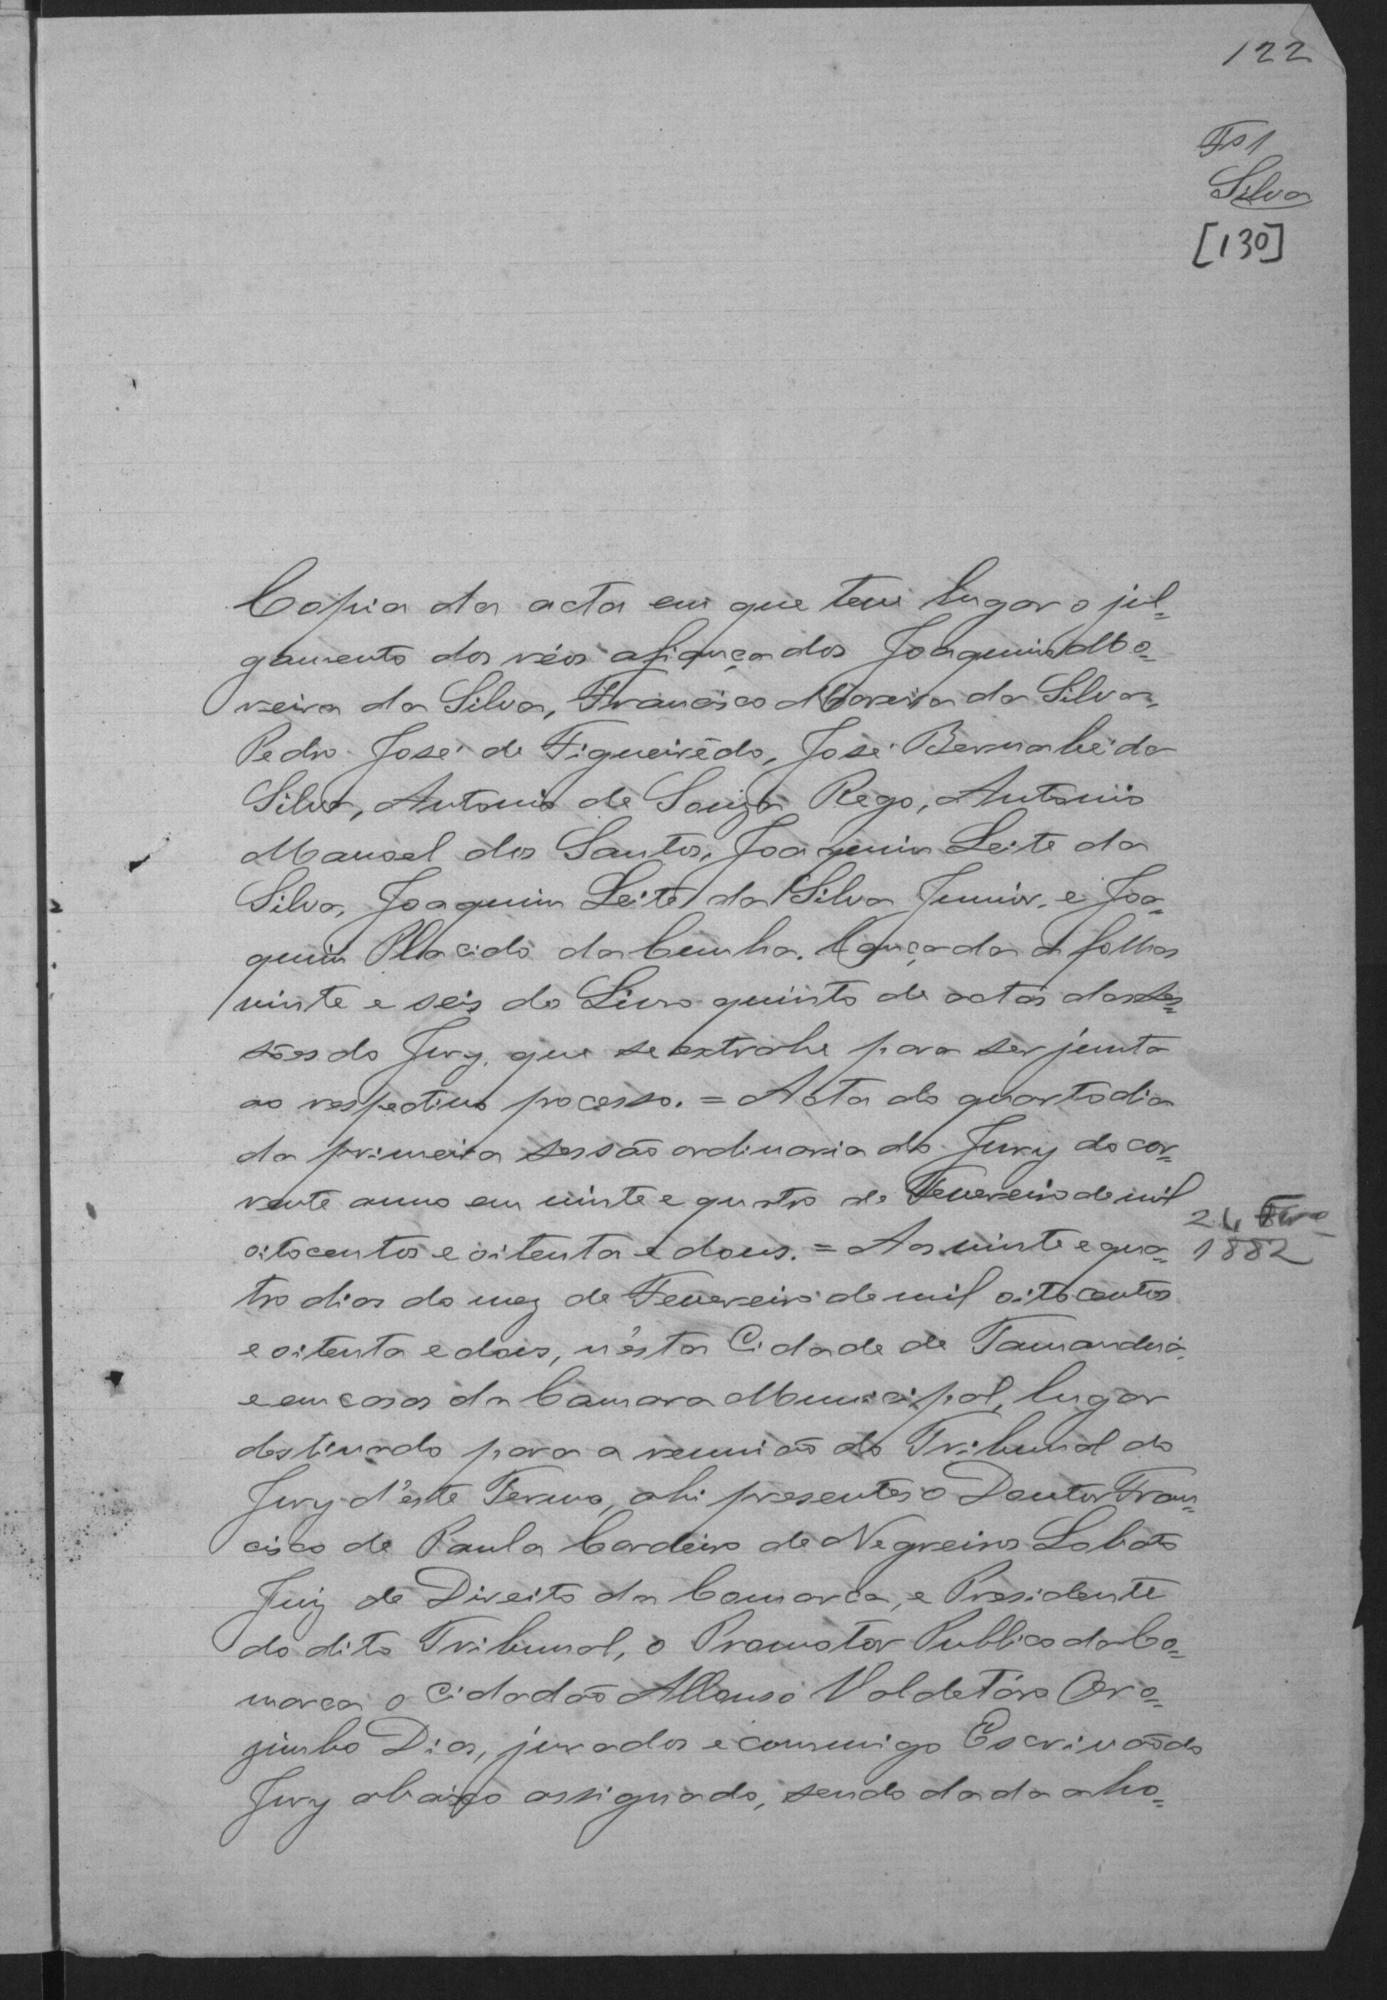 122
Fs 1
Silva
[130]
Copia da acta em que teve lugar o jul=
gamento dos réos afiançados Joaquim Mo=
reira da Silva, Francisco Moreira da Silva,
Pedro José de Figueirêdo, José Bernabé da
Silva, Antonio de Souza Rego, Antonio
Manoel dos Santos, Joaquim Leite da
Silva, Joaquim Leite da Silva Junior, e Joa=
quim Placido da Cunha. Lançada a folhas
vinte e seis do Livro quinto de actas das ses=
sões do Jury, que se extrahe para ser junta
ao respectivo processo. = Acta do quarto dia
da primeira sessão ordinaria do Jury do cor=
rente anno em vinte e quatro de Fevereiro de mil
oitocentos e oitenta e dous. = Aos vinte e qua=
24 Fevro
1882
tro dias do mez de Fevereiro de mil oitocentos
e oitenta e dois, n'ésta Cidade de Tamanduá,
e em casa da Camara Municipal, lugar
destinado para a reunião do Tribunal do
Jury d'éste Termo, ahi presentes o Doutor Fran=
cisco de Paula Cordeiro de Negreiros Lobato
Juiz de Direito da Comarca, e Presidente
do dito Tribunal, o Promotor Publico da Co=
marca o Cidadão Affonso Valdetáro
Dias, jurados e commigo Escrivão do
Jury abaixo assignado, sendo dada a ho=